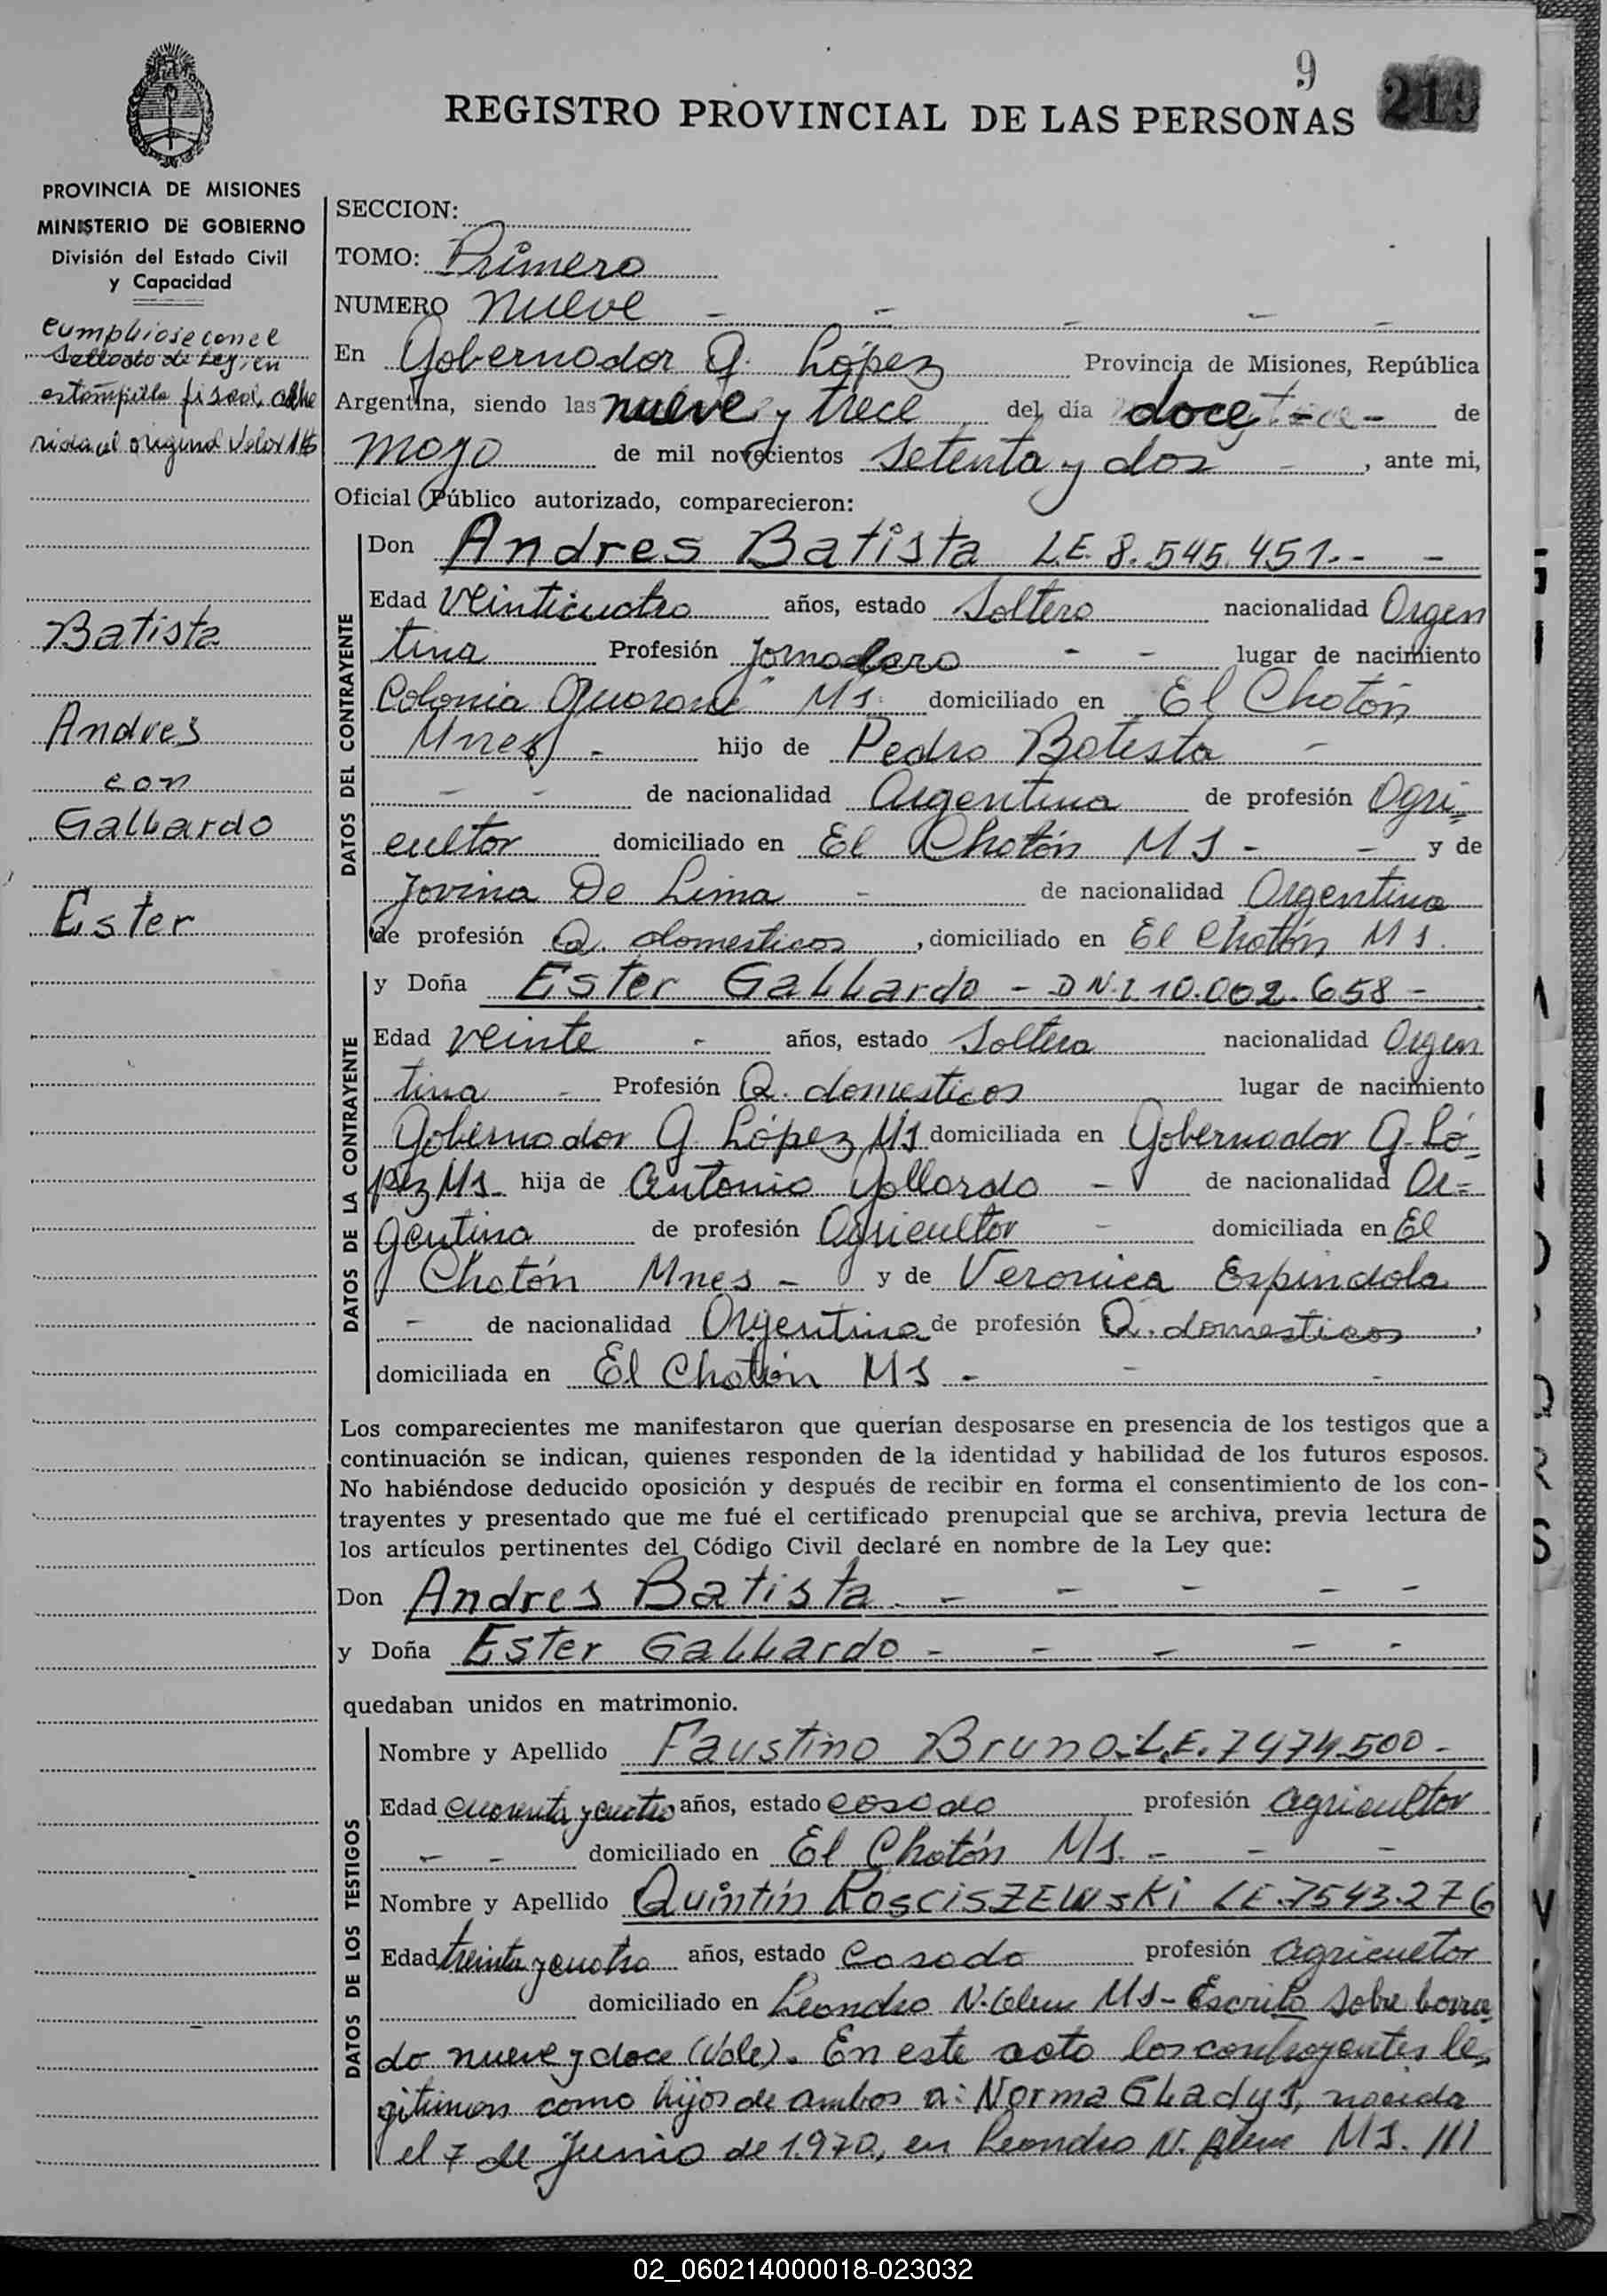 9
219
REGISTRO PROVINCIAL DE LAS PERSONAS
PROVINCIA DE MISIONES
MINISTERIO DE GOBIERNO
División del Estado Civil
y Capacidad
Cumpliose con el
Sellado de Ley, en
estampilla fiscal, adhe
rida al original Valor
Batista
Andres
con
Gallardo
Ester
SECCION:
TOMO: Primero
NUMERO nueve - - - - -
En Gobernador G. López Provincia de Misiones, República
Argentina, siendo las nueve y trece del día doce - de
mayo de mil novecientos setenta y dos - , ante mi,
Oficial Público autorizado, comparecieron:
DATOS DEL CONTRAYENTE
Don Andres Batista L.E. 8.545.451.- -
Edad veinticuatro años, estado Soltero nacionalidad Argen
tina Profesión Jornalero - - lugar de nacimiento
Colonia Guaraní Ms. domiciliado en El Chatón
Mnes - hijo de Pedro Batista -
- - de nacionalidad Argentina de profesión Agri=
cultor domiciliado en El Chatón MS - - y de
Jovina De Lima - de nacionalidad Argentina
de profesión Q. domesticos , domiciliado en El Chatón MS.
DATOS DE LA CONTRAYENTE
y Doña Ester Gallardo - D N.I 10.002.658 -
Edad veinte - años, estado Soltera nacionalidad Argen
tina - Profesión Q. domesticos lugar de nacimiento
Gobernador G. López MS domiciliada en Gobernador G. Ló=
pez MS - hija de Antonio Gallardo - de nacionalidad Ar=
gentina de profesión Agricultor - domiciliada en El
Chatón Mnes - y de Veronica Espindola
- de nacionalidad Argentina de profesión Q. domesticos ,
domiciliada en El Chatón MS - - -
Los comparecientes me manifestaron que querían desposarse en presencia de los testigos que a
continuación se indican, quienes responden de la identidad y habilidad de los futuros esposos.
No habiéndose deducido oposición y después de recibir en forma el consentimiento de los con-
trayentes y presentado que me fué el certificado prenupcial que se archiva, previa lectura de
los artículos pertinentes del Código Civil declaré en nombre de la Ley que:
Don Andres Batista - - - - -
y Doña Ester Gallardo - - - - -
quedaban unidos en matrimonio.
DATOS DE LOS TESTIGOS
Nombre y Apellido Faustino Bruno.- L.E. 7474500 -
Edad cuarenta y cuatro años, estado casado profesión agricultor
- - domiciliado en El Chatón MS. - - -
Nombre y Apellido Quintín Rosciszewski LE.7543.276
Edad treinta y cuatro años, estado casado profesión agricultor
domiciliado en Leandro N. Alem MS - Escrito sobre borra=
do nueve y doce (Vale). En este acto los contrayentes le=
gitiman como hijos de ambos a: Norma Gladys, nacida
el 7 de Junio de 1.970., en Leandro N. Alem MS. ///
02_060214000018-023032